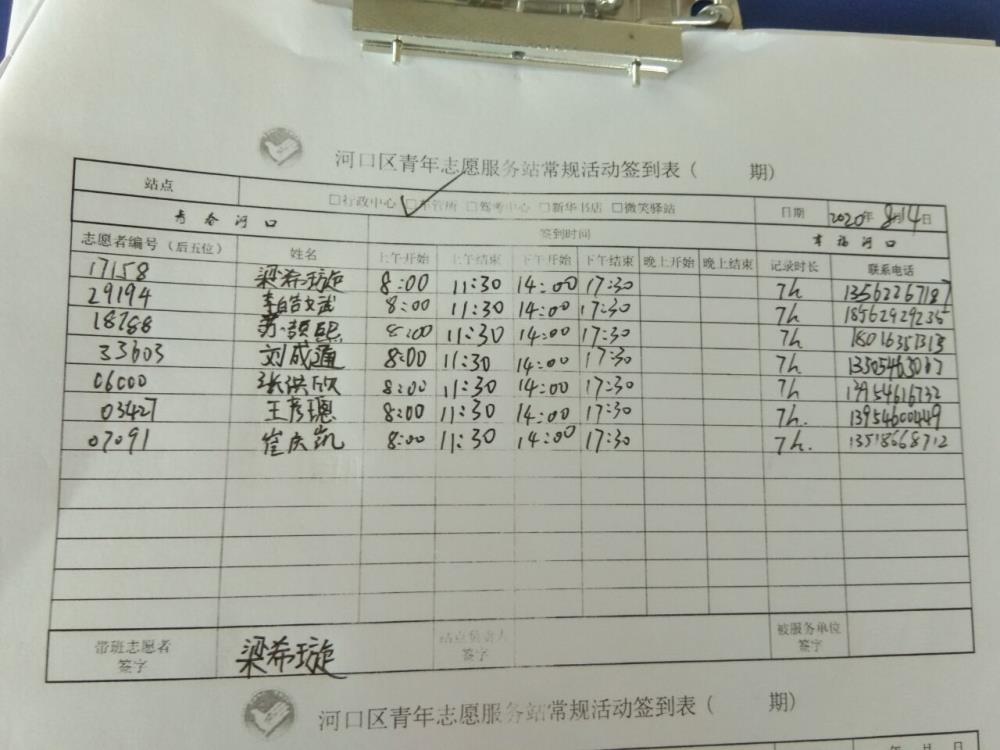 河口区青年志愿服务站常规活动签到表（ 期）
站点 □行政中心 □车管所 □驾考中心 □新华书店 □微笑驿站 日期 2020年 8月14日
青春河口 签到时间 幸福河口
志愿者编号（后五位） 姓名 上午开始 上午结束 下午开始 下午结束 晚上开始 晚上结束 记录时长 联系电话
17158 梁希璇 8:00 11:30 14:00 17:30 7h 13562267187
29194 李皓文武 8:00 11:30 14:00 17:30 7h 18562929235
18788 8:00 11:30 14:00 17:30 7h 18016351313
33603 刘成通 8:00 11:30 14:00 17:30 7h
06000 张洪欣 8:00 11:30 14:00 17:30 7h 13954616732
03427 王彦璁 8:00 11:30 14:00 17:30 7h. 13954600449
07091 崔庆凯 8:00 11:30 14:00 17:30 7h. 13518668712
带班志愿者签字 梁希璇 站点负责人签字 被服务单位签字
河口区青年志愿服务站常规活动签到表（ 期）
年 月 日